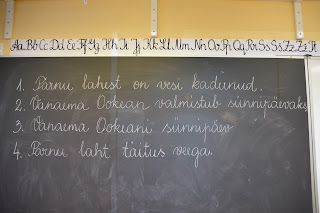 Aa Bb Cc Dd Ee Ff Gg Hh Ii Jj Kk Ll Mm Nn Oo Pp Qq Rr Ss Šš Zz Žž
1. Pärnu lahest on vesi kadunud.
2. Vanaema Ookean valmistub sünnipäevaks
3. Vanaema Ookeani sünnipäev
4. Pärnu laht täitus veega.